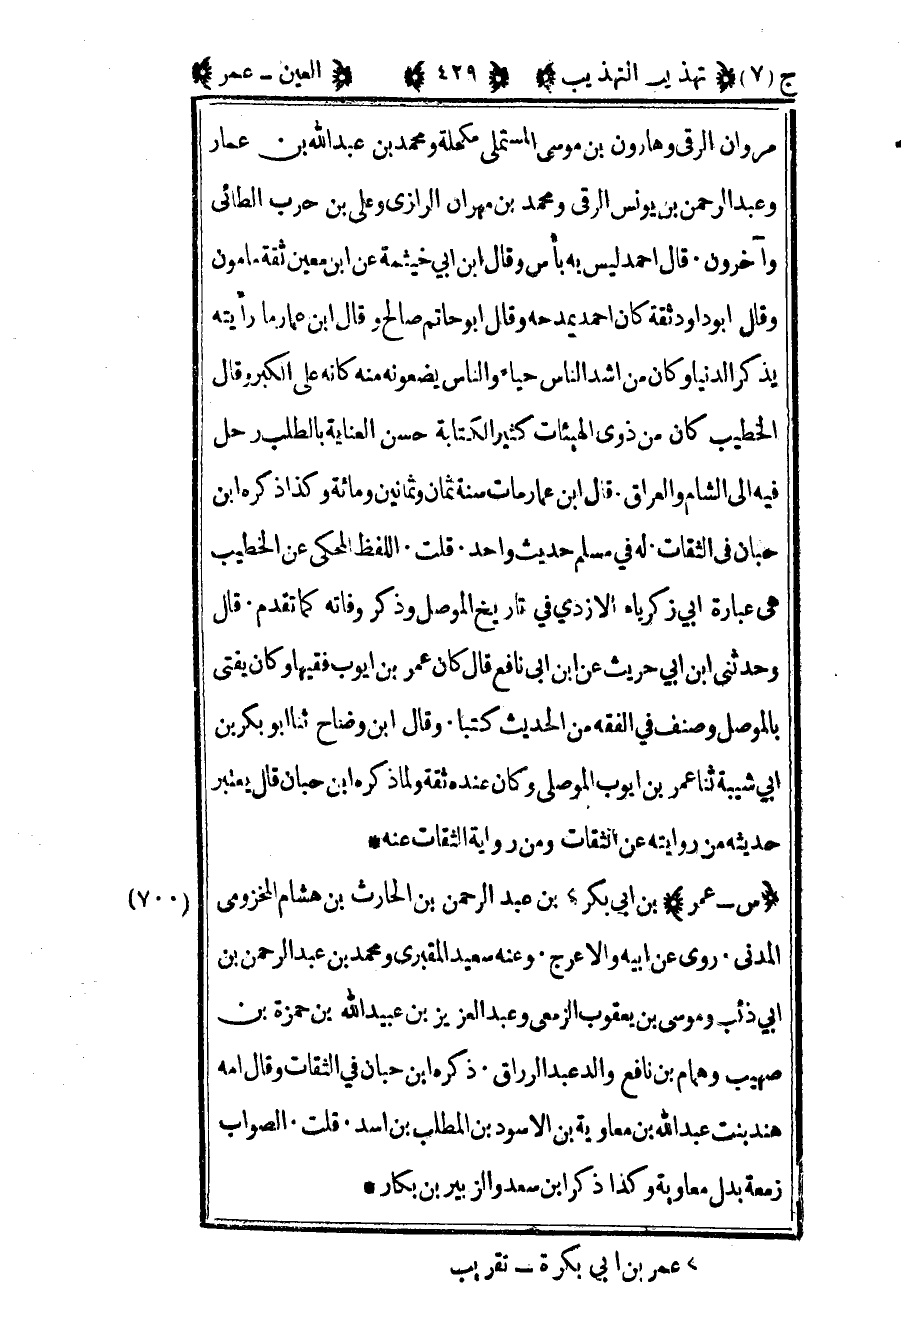 ج (٧) ﴿ تهذيب التهذيب ﴾ ﴿ ٤٢٩ ﴾ ﴿ العين ــ عمر ﴾
مروان الرقى وهارون بن موسى المستملى مكحلة ومحمد بن عبدالله بن عمار
وعبدالرحمن بن يونس الرقى ومحمد بن مهران الرازى وعلى بن حرب الطائى
وآخرون · قال احمد ليس به بأس وقال ابن ابي خيثمة عن ابن معين ثقة مامون
وقال ابوداود ثقة كان احمد يمدحه وقال ابوحاتم صالح وقال ابن عمار ما رأيته
يذكر الدنيا وكان من اشد الناس حياء والناس يضعونه منه كانه على الكبر وقال
الخطيب كان من ذوى الهيئات كثير الكتابة حسن العناية بالطلب رحل
فيه الى الشام والعراق · قال ابن عمار مات سنة ثمان وثمانين ومائة وكذا ذكره ابن
حبان فى الثقات · له في مسلم حديث واحد · قلت · اللفظ المحكى عن الخطيب
هى عبارة ابي زكرياء الازدي في تاريخ الموصل وذكر وفاته كما تقدم · قال
وحدثنى ابن ابي حريث عن ابن ابى نافع قال كان عمر بن ايوب فقيها وكان يفتى
بالموصل وصنف في الفقه من الحديث كتبا · وقال ابن وضاح ثنا ابو بكر بن
ابي شيبة ثنا عمر بن ايوب الموصلى وكان عنده ثقة ولما ذكره ابن حبان قال يعتبر
حديثه من روايته عن الثقات ومن رواية الثقات عنه *
﴿ س ــ عمر ﴾ بن ابي بكر > بن عبد الرحمن بن الحارث بن هشام المخزومى (٧٠٠)
المدنى · روى عن ابيه والاعرج · وعنه سعيد المقبرى ومحمد بن عبدالرحمن بن
ابي ذئب وموسى بن يعقوب الزمعى وعبد العزيز بن عبيدالله بن حمزة بن
صهيب وهمام بن نافع والد عبد الرزاق · ذكره ابن حبان في الثقات وقال امه
هند بنت عبدالله بن معاوية بن الاسود بن المطلب بن اسد · قلت · الصواب
زمعة بدل معاوية وكذا ذكر ابن سعد والزبير بن بكار *
> عمر بن ابي بكرة ــ تقريب